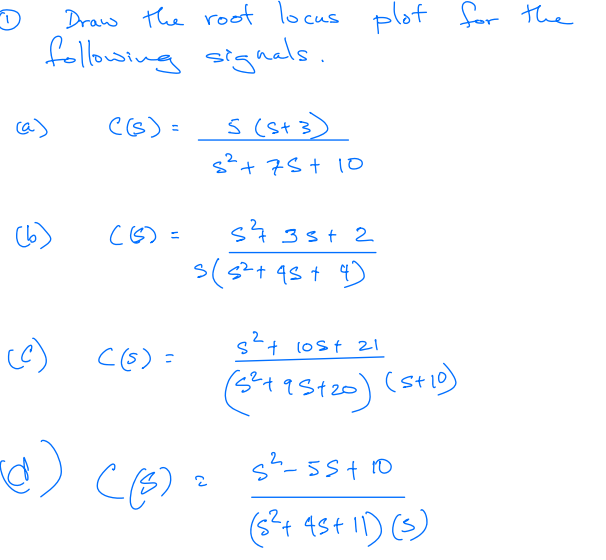 ① Draw the root locus plot for the
following signals.
(a) C(s) = 5 (s+3)
s² + 7s + 10
(b) C(s) = s² + 3s + 2
s(s² + 4s + 4)
(c) C(s) = s² + 10s + 21
(s² + 9s + 20) (s+10)
(d) C(s) = s² - 5s + 10
(s² + 4s + 11) (s)